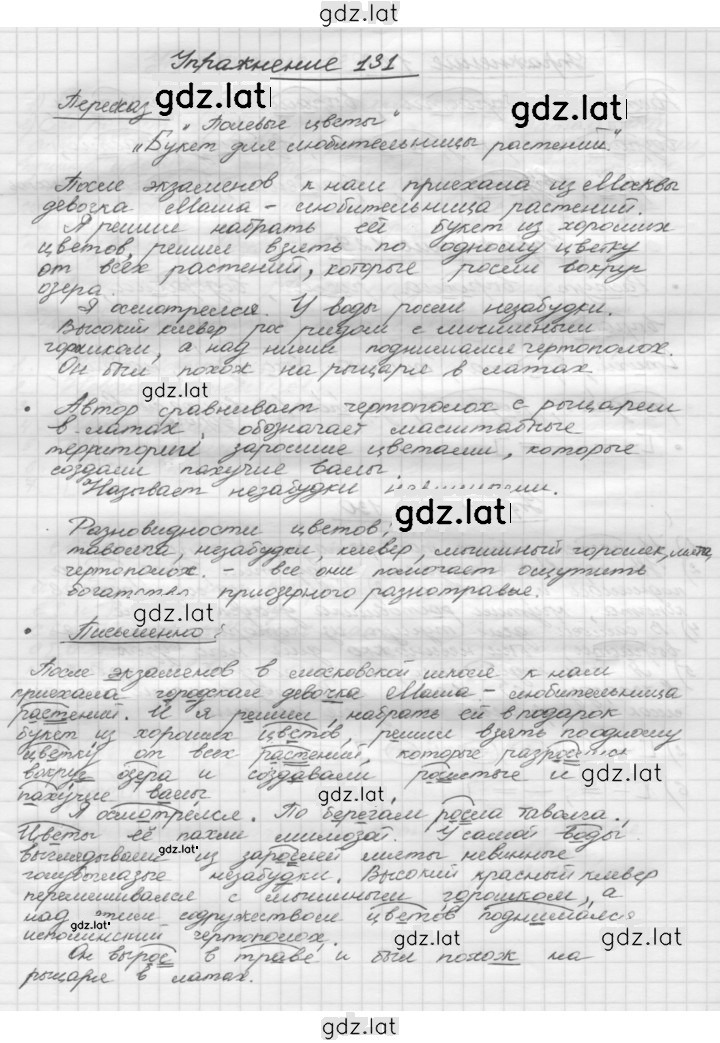 gdz.lat
Упражнение 131
Пересказ gdz.lat gdz.lat
"Полевые цветы"
"Букет для любительницы растений."
После экзаменов к нам приехала из Москвы
девочка Маша - любительница растений.
Я решил набрать ей букет из хороших
цветов, решил взять по одному цветку
от всех растений, которые росли вокруг
озера.
Я осмотрелся. У воды росли незабудки.
Высокий клевер рос рядом с мышиным
горошком, а над ними поднимался чертополох.
Он был похож на рыцаря в латах
gdz.lat
• Автор сравнивает чертополох с рыцарем
в латах, обозначает масштабные
территории заросшие цветами, которые
создали пахучие валы.
Называет незабудки
gdz.lat
Разновидности цветов:
таволга, незабудки, клевер, мышиный горошек, мята,
чертополох. - все они помогает ощутить
приозерного разнотравые.
gdz.lat
• Письменно:
После экзаменов в московской школе к нам
приехала городская девочка Маша - любительница
растений. И я решил, набрать ей в подарок
букет из хороших цветов, решил взять по одному
цветку от всех растений, которые
вокруг озера и создавали и
пахучие валы gdz.lat gdz.lat
Я осмотрелся. По берегам росла таволга.
Цветы её пахли мимозой. У самой воды
выглядывали из зарослей мяты невинные
gdz.lat
голубоглазые незабудки. Высокий красный клевер
перемешивался с мышиным горошком, а
над этим содружеством цветов поднимался
исполинский чертополох.
gdz.lat gdz.lat gdz.lat
Он вырос в траве и был похож на
рыцаря в латах.
gdz.lat